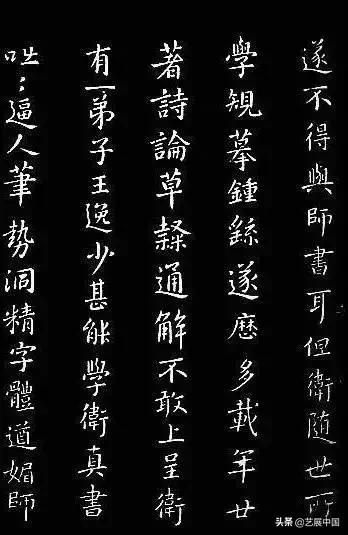 遂不得與師書耳但衛随世所
學規摹鍾繇遂歷多載年廿
著詩論草隸通解不敢上呈衛
有一弟子王逸少甚能學衛真書
咄：逼人筆勢洞精字體遒媚師
头条 @艺展中国